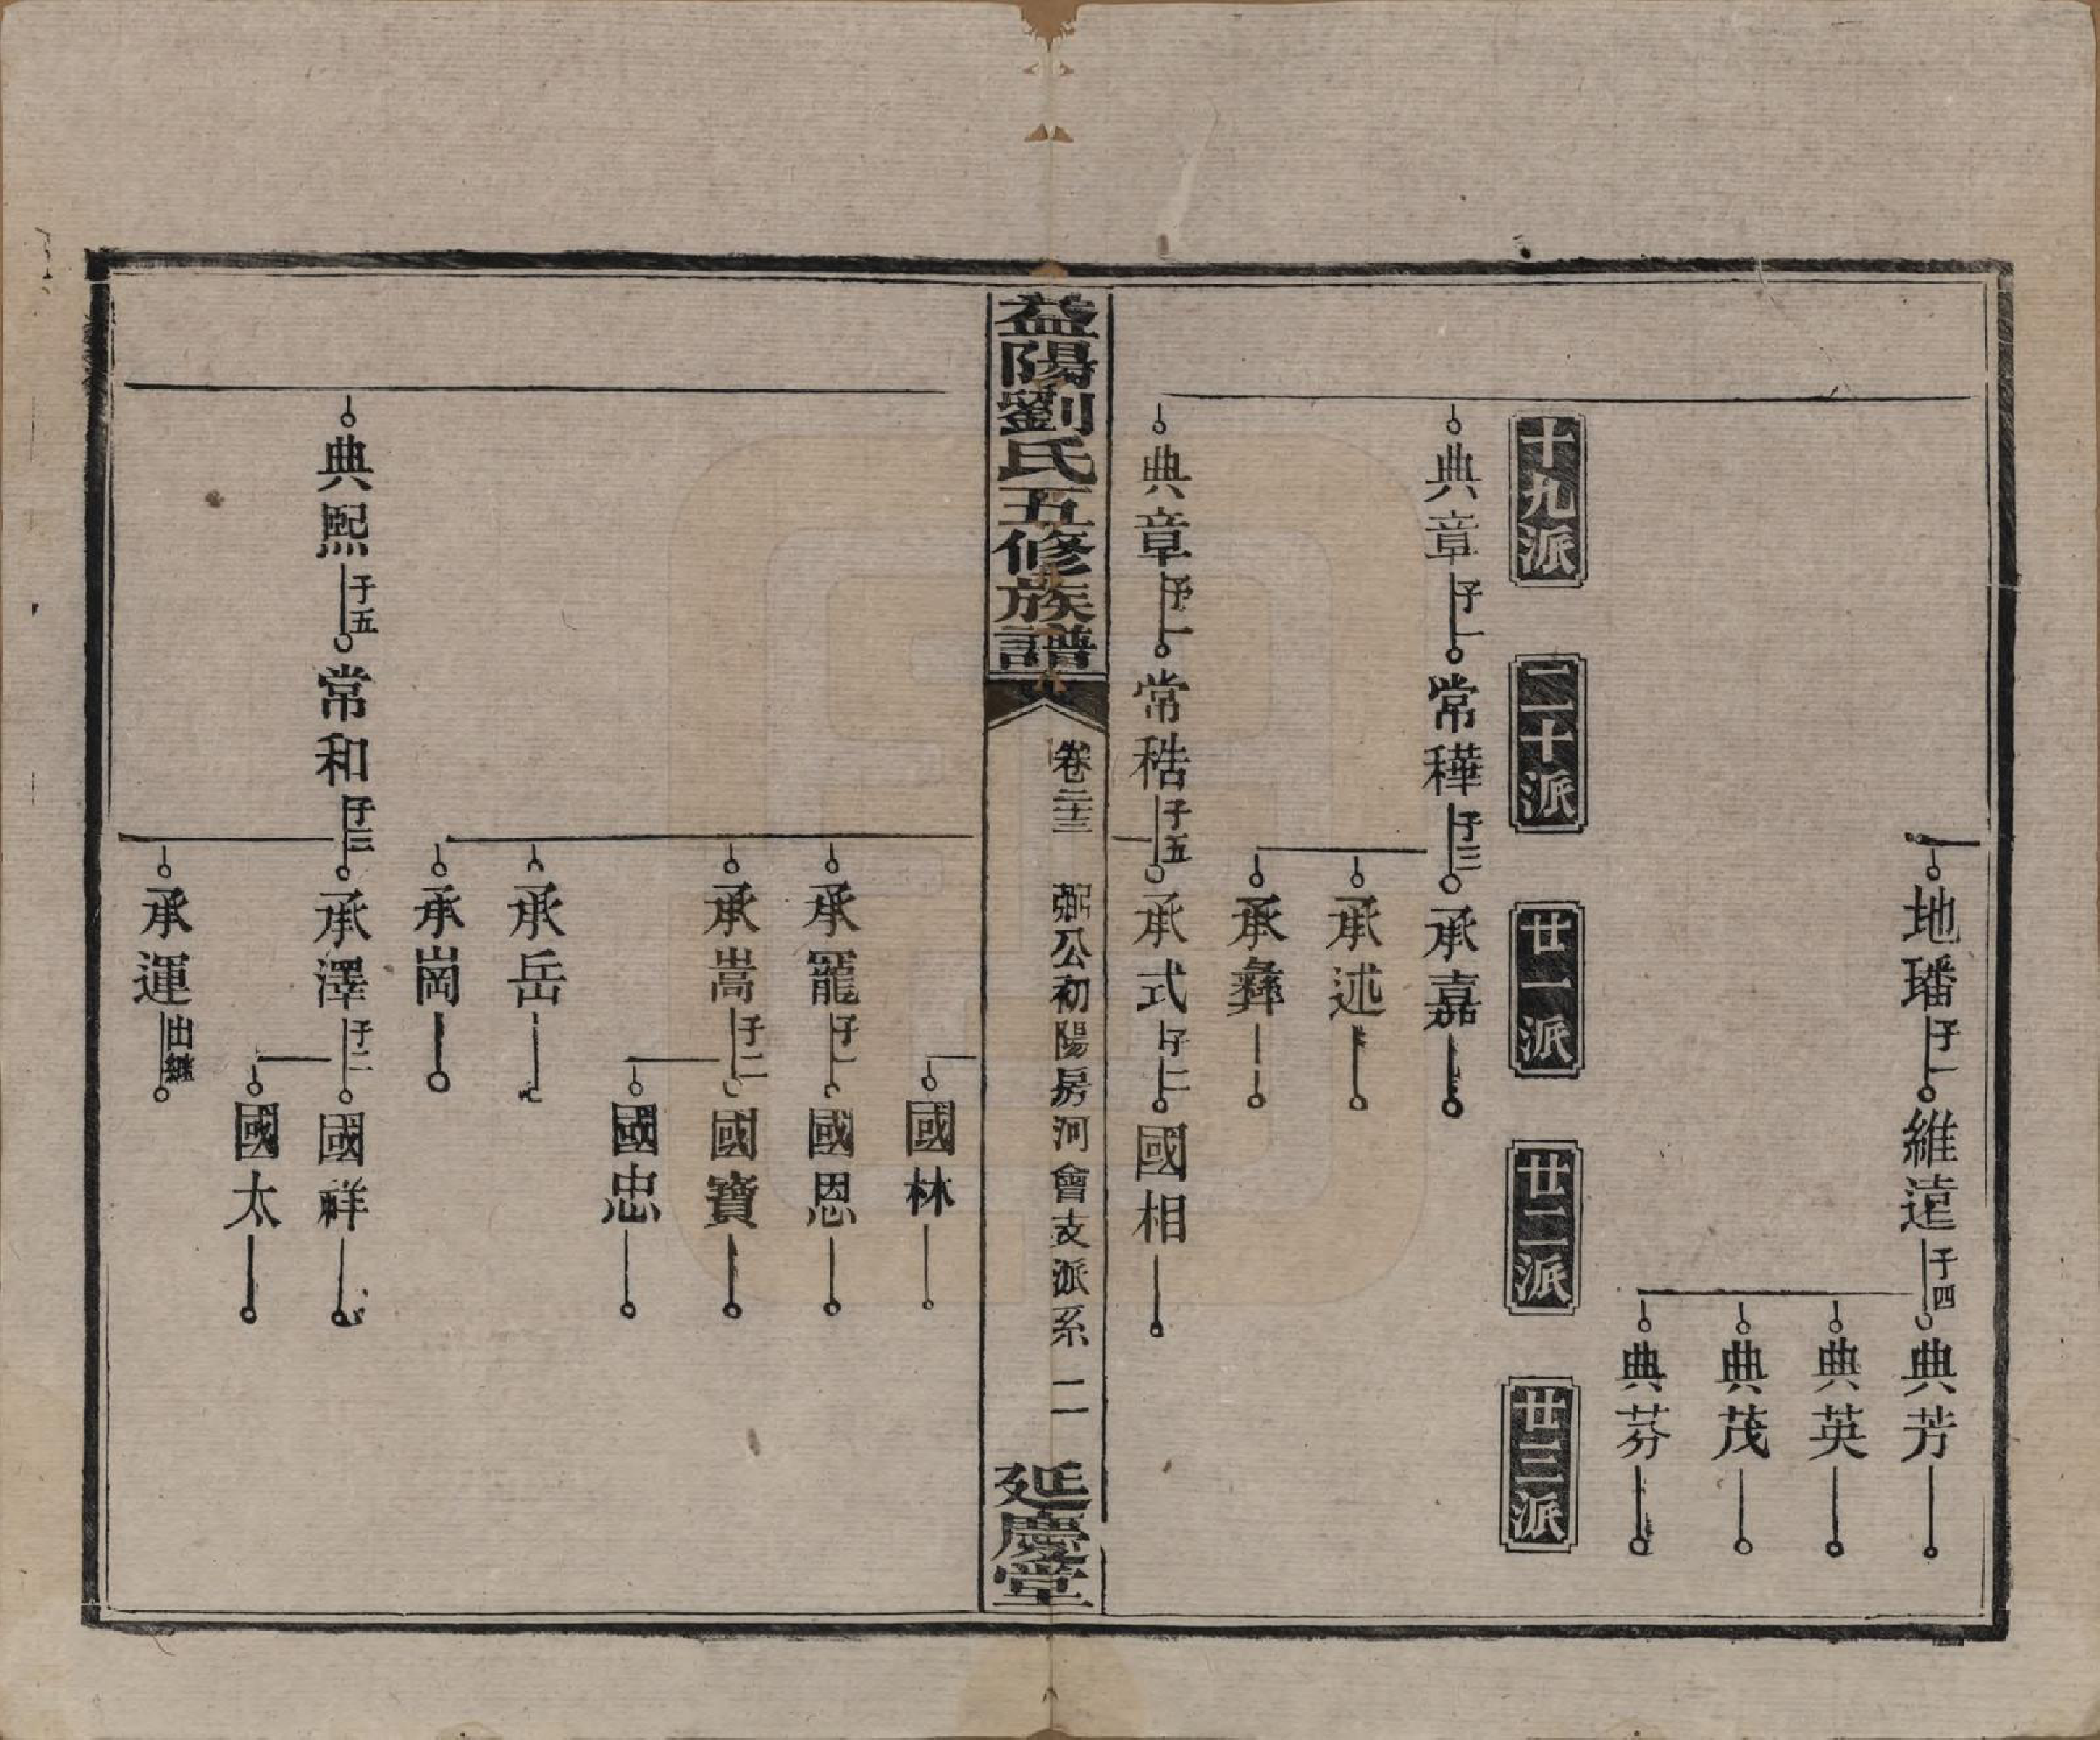 地璠子一維遠子四典芳
典英
典茂
典芬
十九派 二十派 廿一派 廿二派 廿三派
典章子一常𥢎子三承嘉
承述
承彝
典章子一常秸子五承式子二國相
益陽劉氏五修族譜 卷二十三 弼公初陽房河會支派系 二 延慶堂
國林
承寵子一國恩
承嵩子二國寶
國忠
承岳
承崗
典熙子五常和子三承澤子二國祥
國太
承運出繼